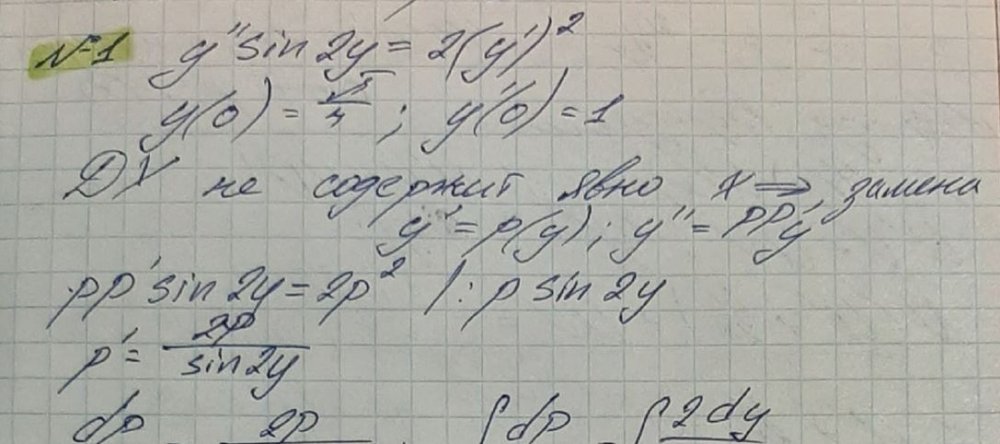 №1 y'' sin 2y = 2(y')²
y(0) = π/4 ; y'(0) = 1
ДУ не содержит явно x ⇒ замена
y' = p(y); y'' = pp'y
pp' sin 2y = 2p² | : p sin 2y
p' = 2p / sin 2y
dp 2p ∫ dp ∫ 2dy